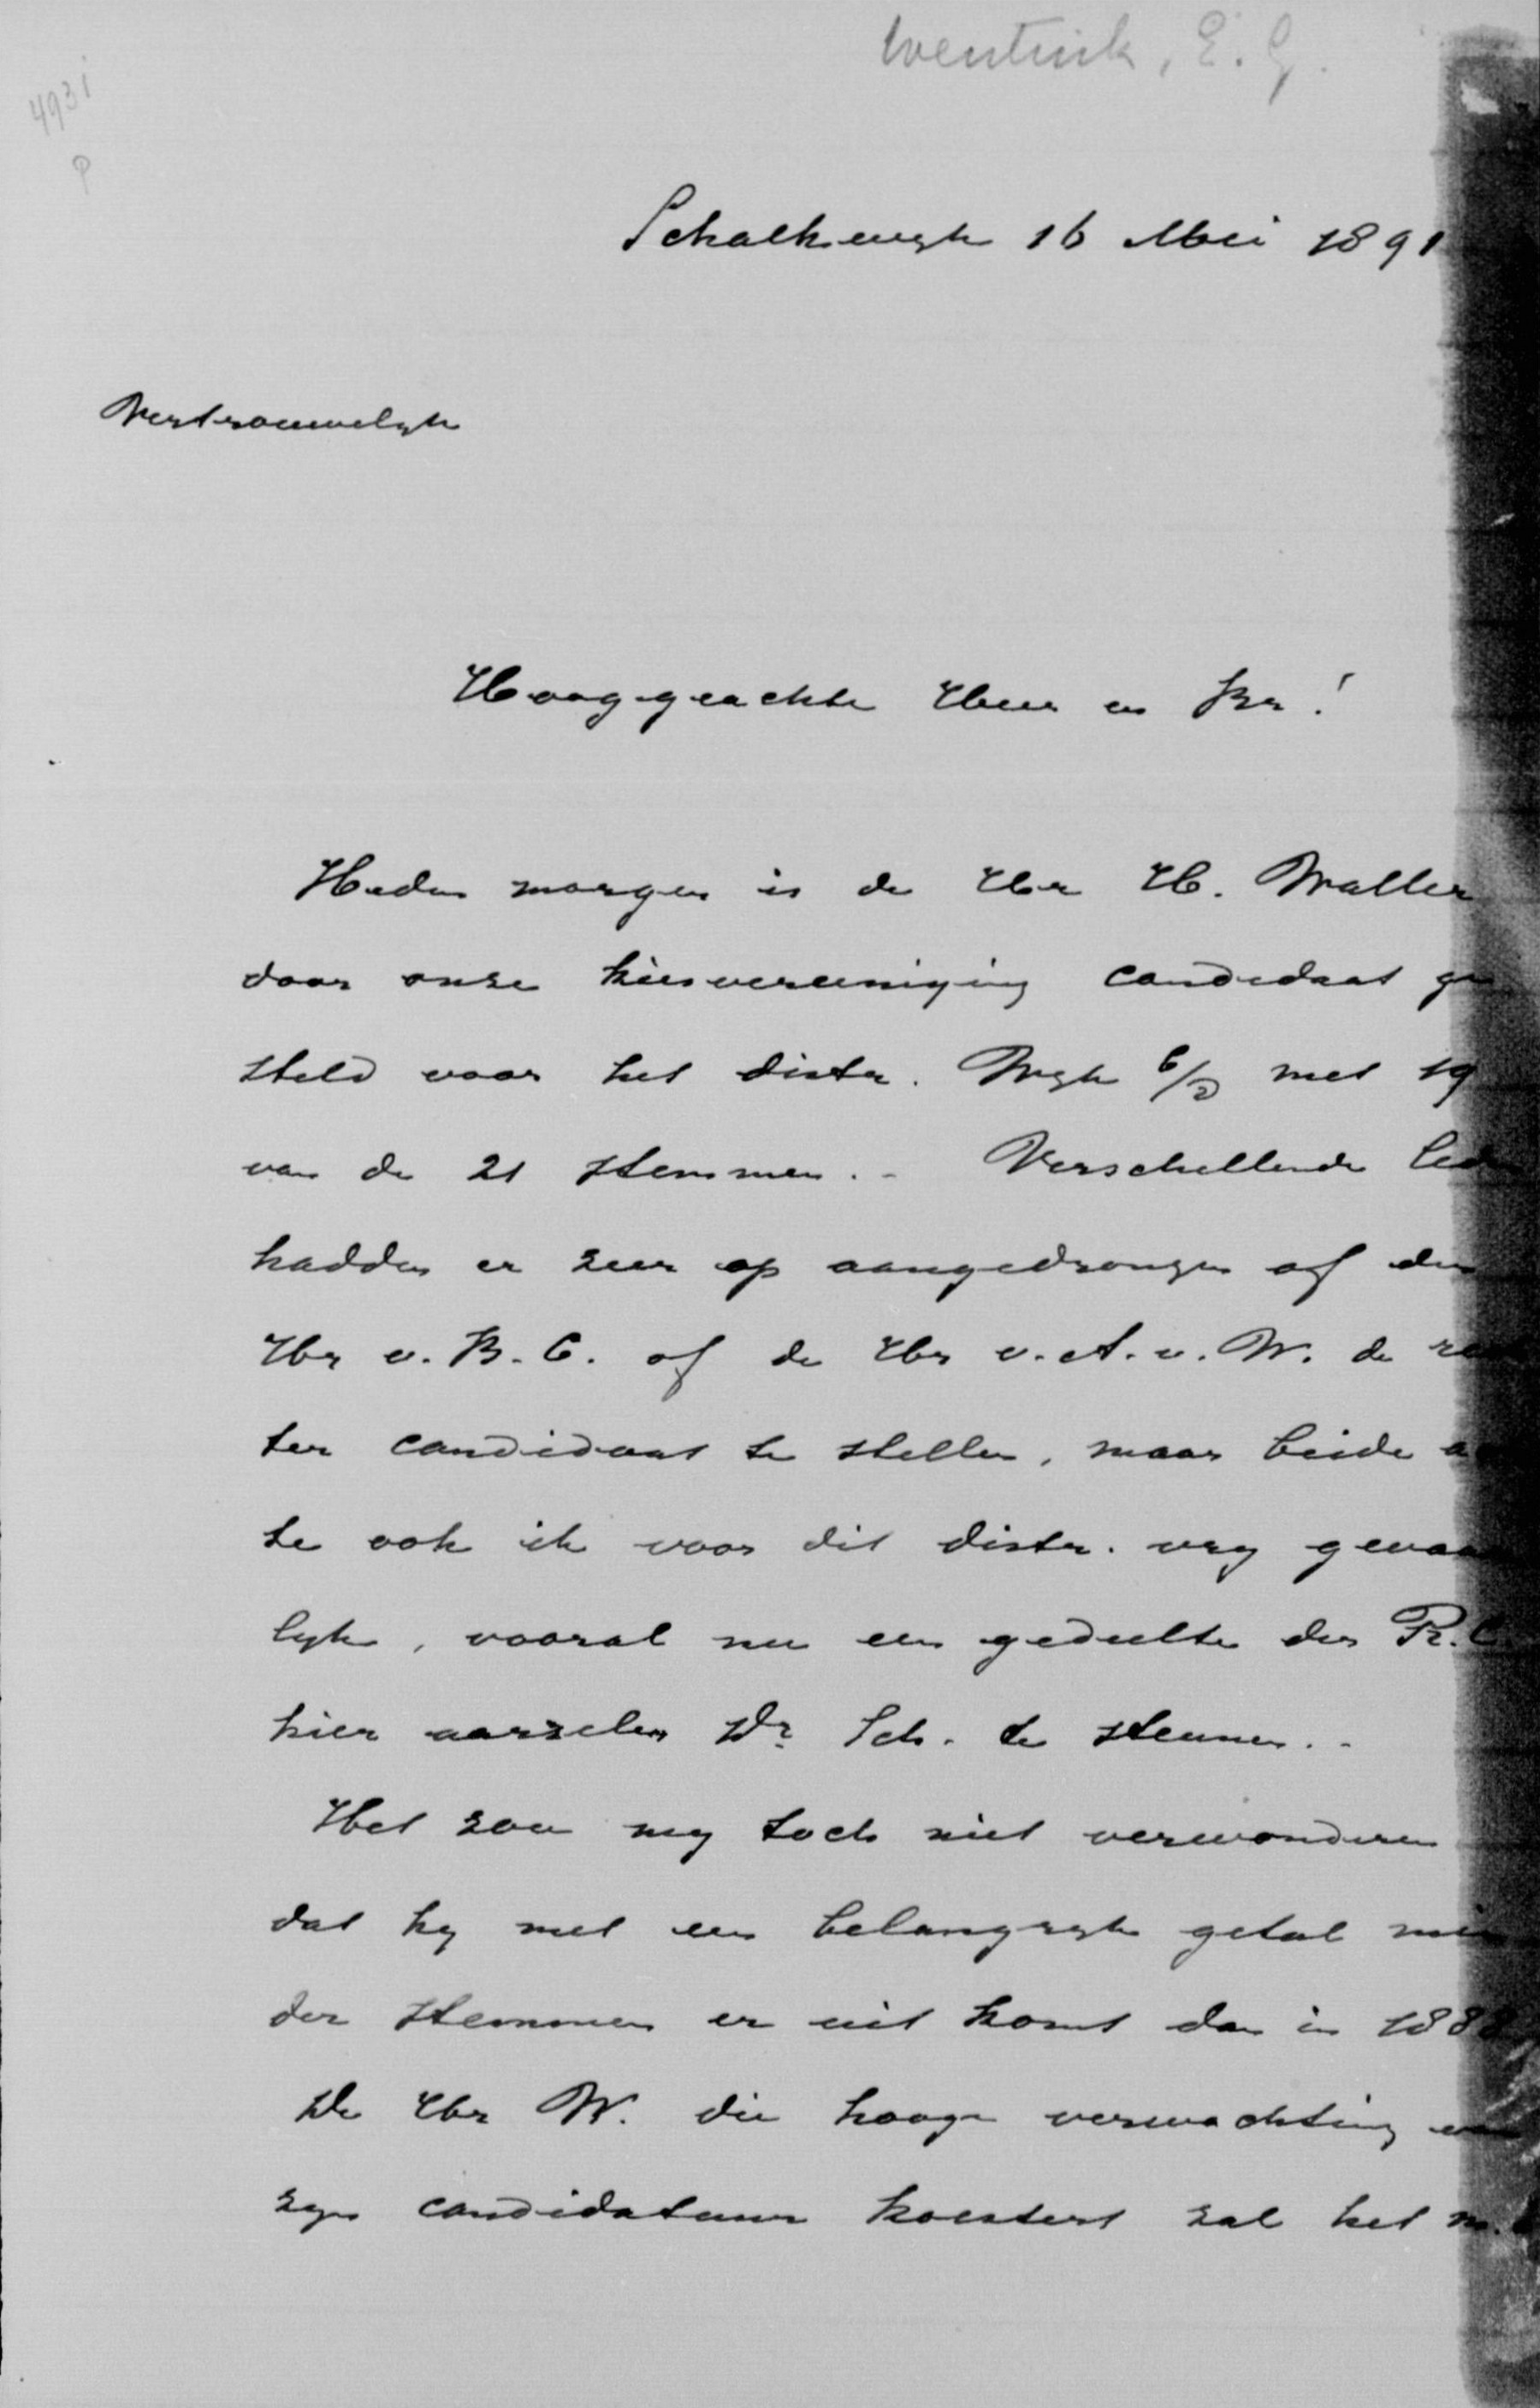 Wentink, E. G.
4931
P
Schalkwyk 16 Mei 1891
Vertrouwelyk
Hooggeachte Heer en Br!
Heden morgen is de Hr H. Waller
door onze kiesvereeniging candidaat ge
steld voor het distr. Wyk b/D met 19
van de 21 stemmen. - Verschillende lede
hadden er zeer op aangedrongen of den
Hr v. B. C. of de Hr v. A. v. W. de
ter candidaat te stellen, maar beide
te ook ik voor dit distr. vry gevaa
lyk, vooral nu een gedeelte der R. C
hier aarzelen Dr Sch. te steunen. -
Het zou my toch niet verwonderen
dat hy met een belangryk getal min
der stemmen er uit komt dan in 1888
De Hr W. die hooge verwachting van
zyn candidatuur koestert zal het